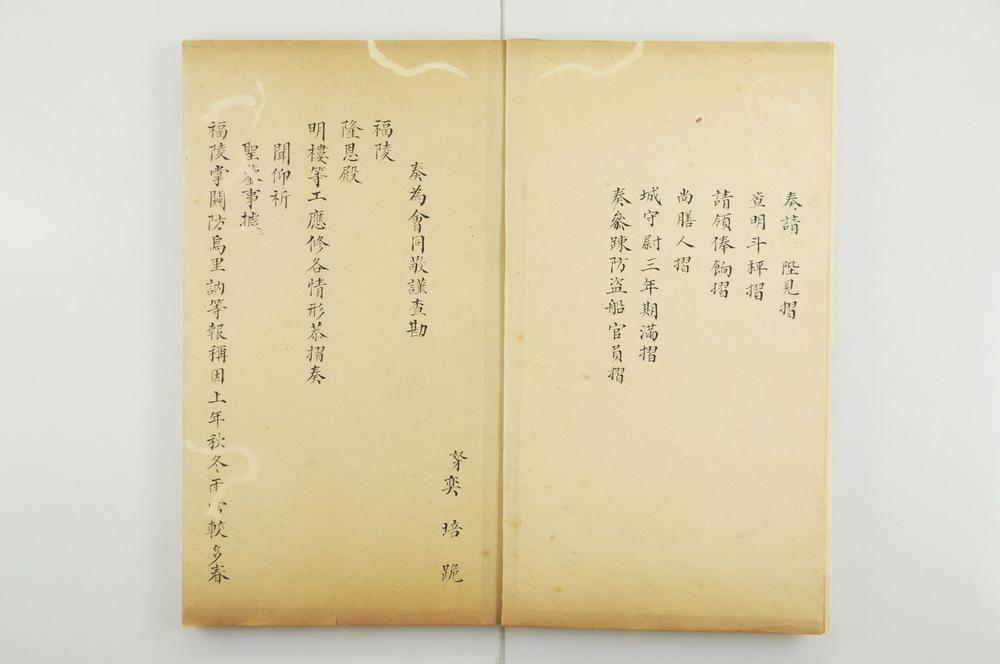 奏請 陛見摺
查明斗秤摺
請領俸餉摺
尚膳人摺
城守尉三年期滿摺
奏叅踈防盜船官員摺
奕 培 跪
奏為會同敬謹查勘
福陵
隆恩殿
明樓等工應修各情形恭摺奏
聞仰祈
聖鑒事據
福陵掌關防烏里訥等報稱因上年秋冬雨雪較多春